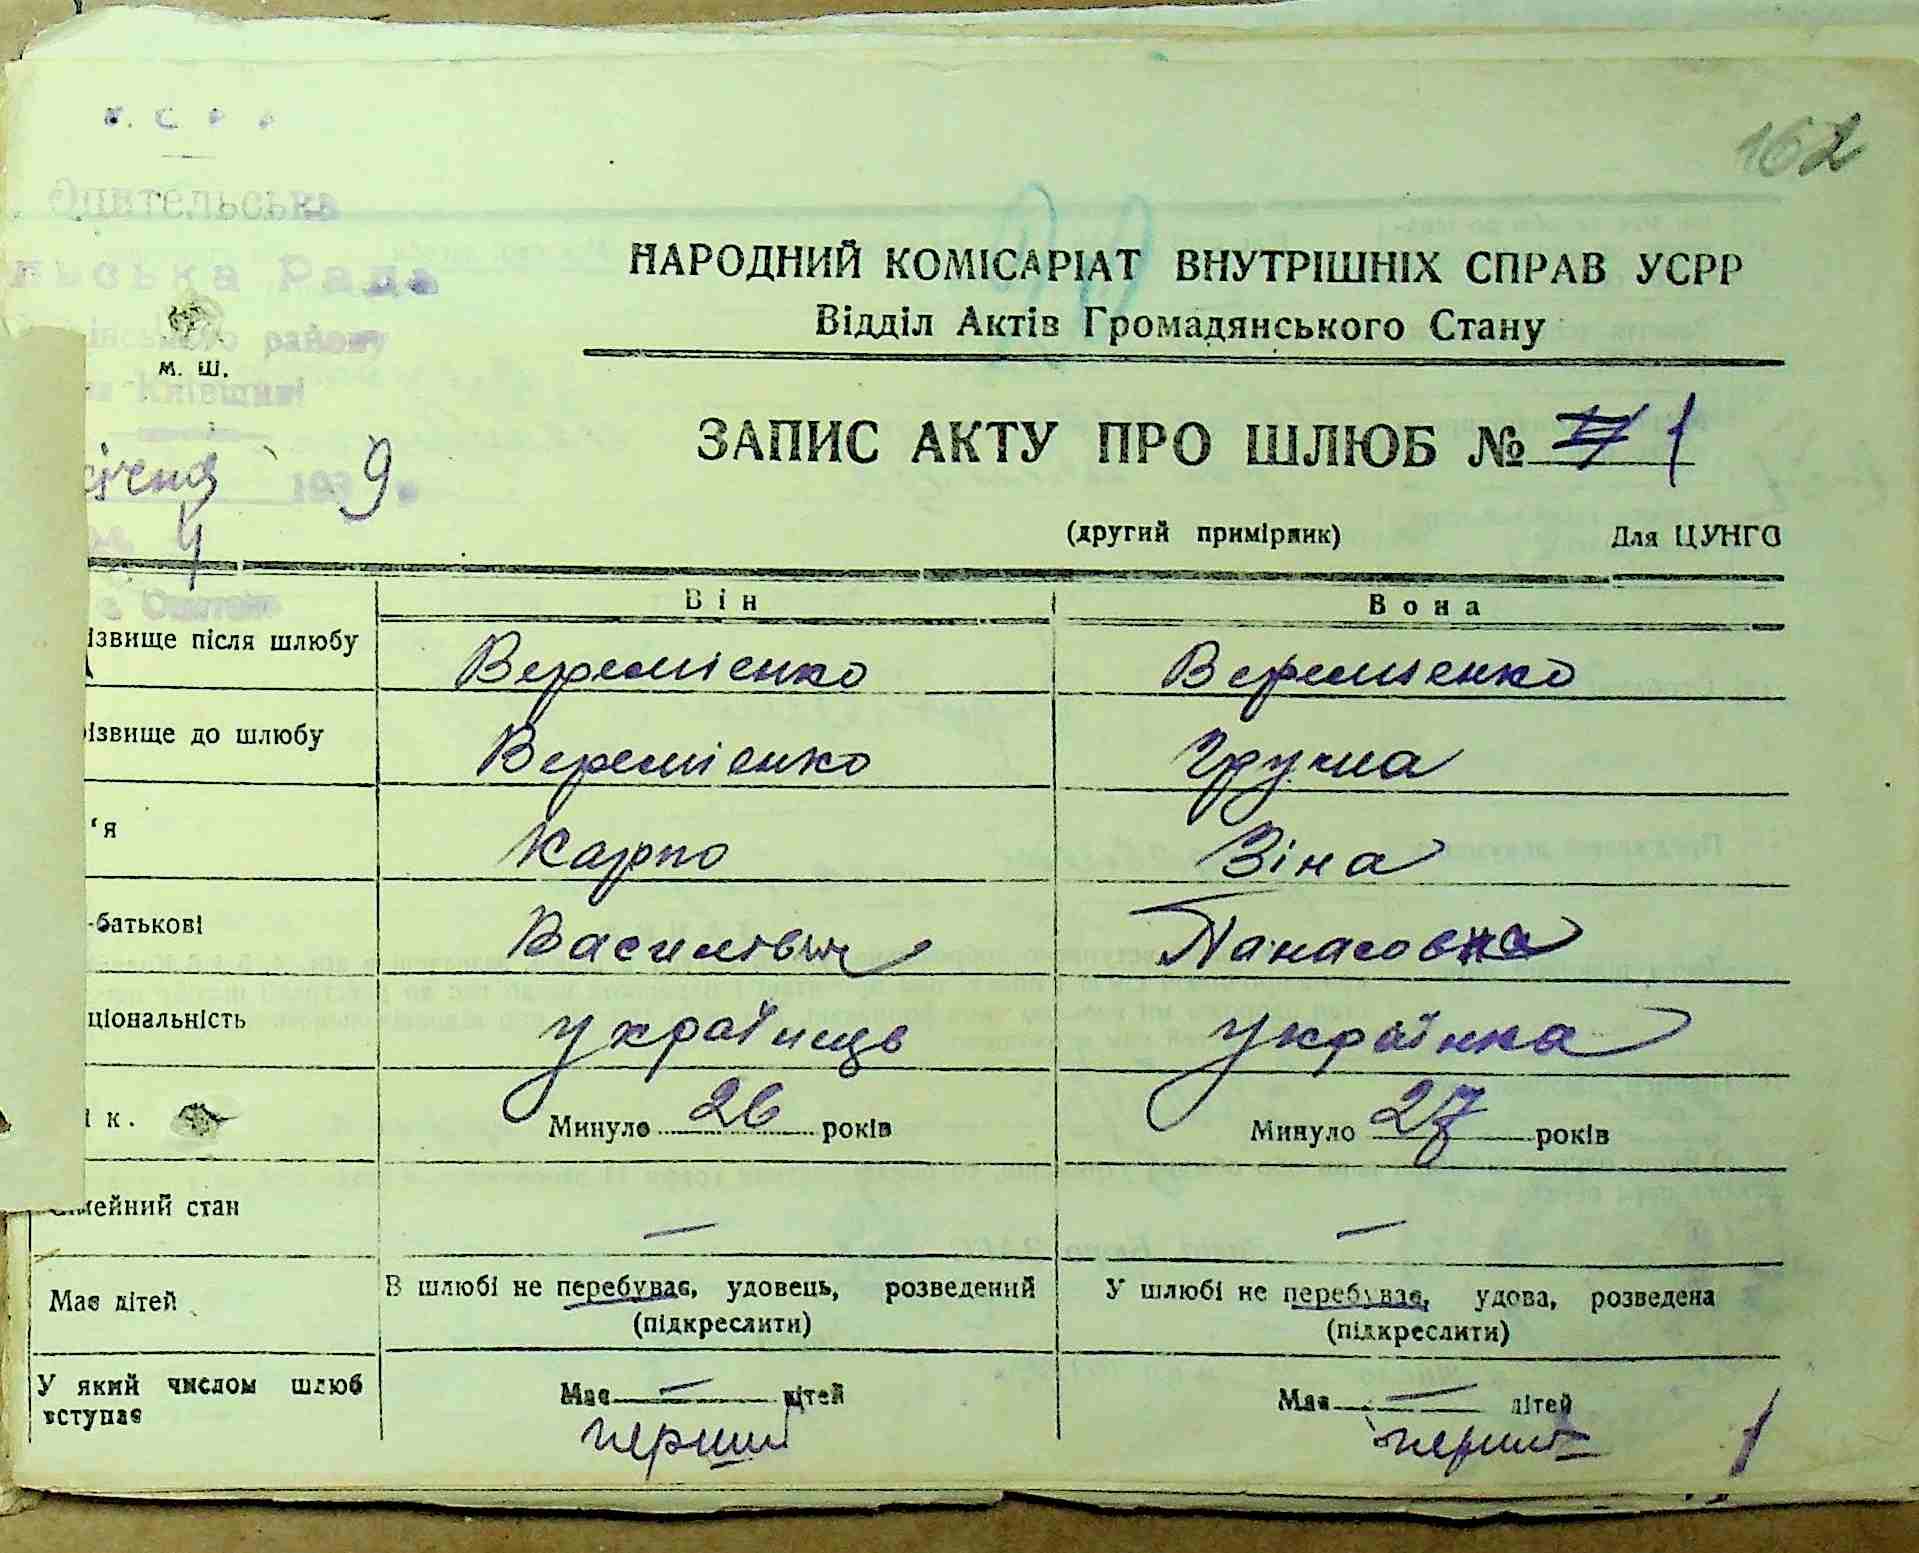 162
У. С. Р. Р.
Оцительська
льська Рада
району
Київщині
м. ш.
січня 1939 р.
4
НАРОДНИЙ КОМІСАРІАТ ВНУТРІШНІХ СПРАВ УСРР
Відділ Актів Громадянського Стану
ЗАПИС АКТУ ПРО ШЛЮБ № 1
(другий примірник) Для ЦУНГО
Він Вона
ізвище після шлюбу Веремієнко Веремієнко
ізвище до шлюбу Веремієнко
'я Карпо Зіна
-батькові Василівич Панасовна
ціональність українець українка
ік. Минуло 26 років Минуло 27 років
Сімейний стан — —
Має дітей В шлюбі не перебуває, удовець, розведений У шлюбі не перебуває, удова, розведена
(підкреслити) (підкреслити)
У який числом шлюб вступає Має — дітей Має — дітей
перший перший